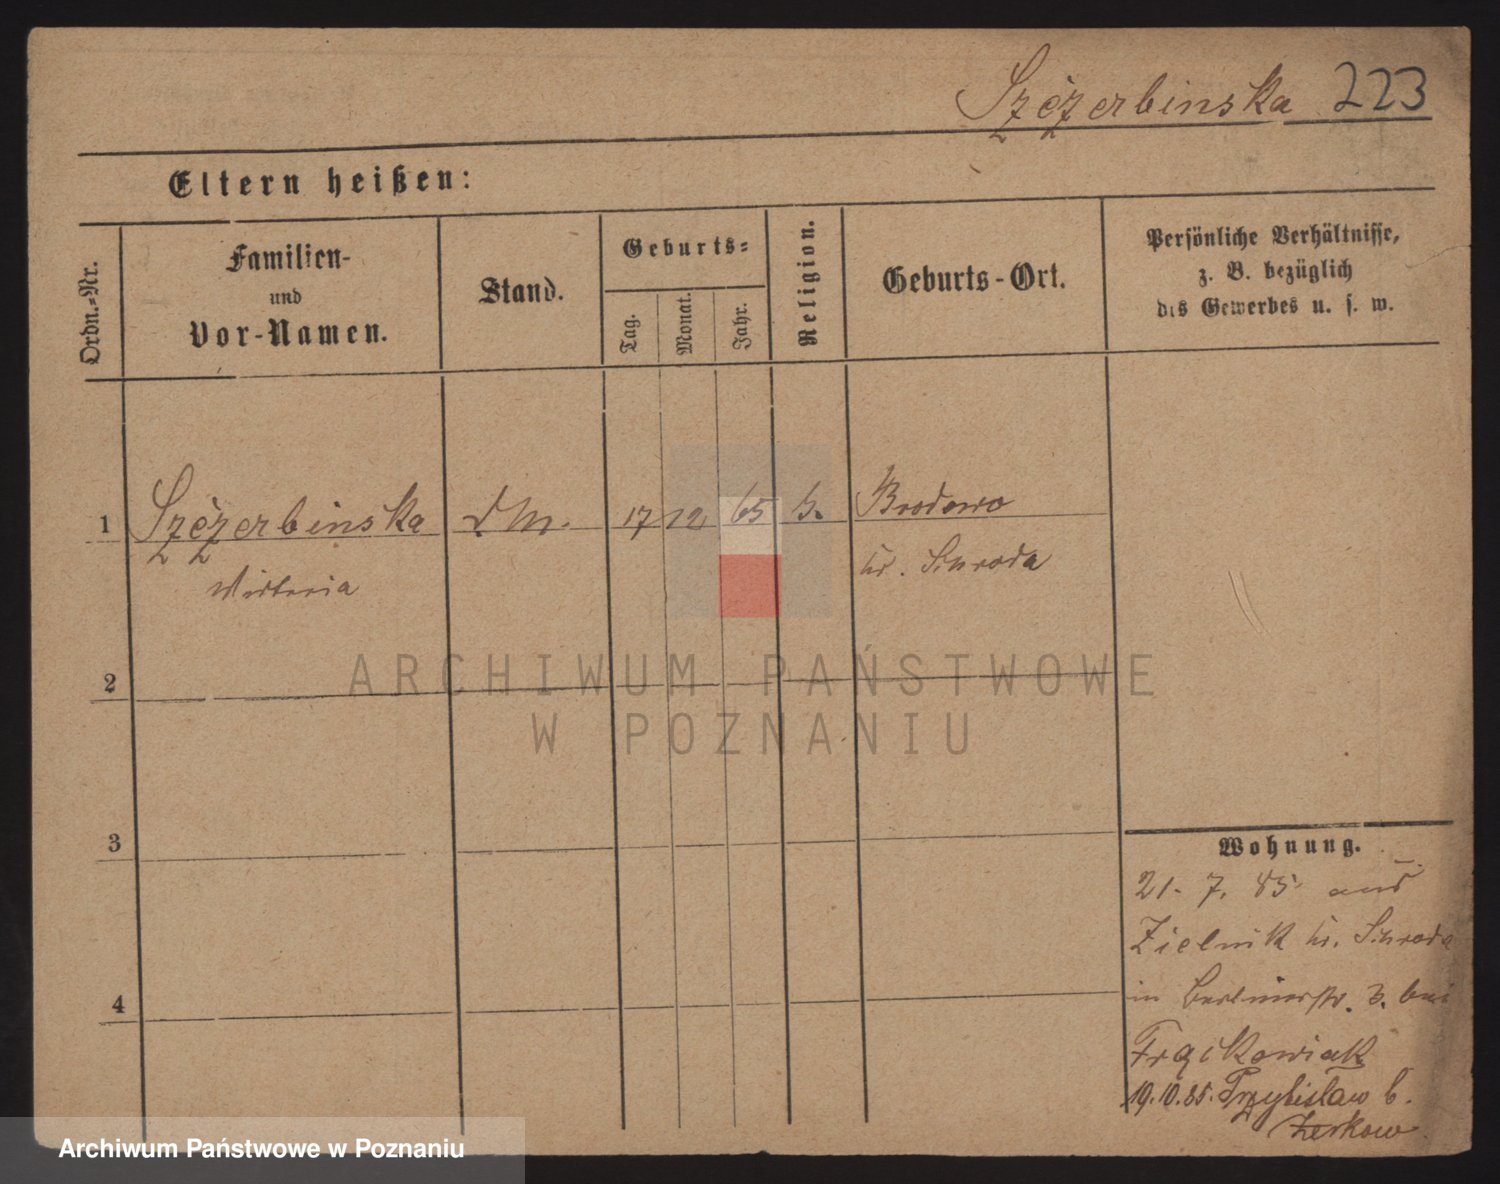 Szczerbinska 223
Eltern heißen:
Ordn.-Nr.
Familien-
und
Vor-Namen.
Stand.
Geburts-
Tag.
Monat.
Jahr.
Religion.
Geburts-Ort.
Persönliche Verhältnisse,
z. B. bezüglich
des Gewerbes u. s. w.
1 Szczerbinska d M. 17 12 65 k. Brodowo
Victoria Kr. Schroda
2
3
4
Wohnung.
21. 7. 85 aus
Zielnik Kr. Schroda
in Berlinerstr. 3. bei
Frąckowiak
19.10.85. Przybislaw b.
Zerkow
ARCHIWUM PAŃSTWOWE
W POZNANIU
Archiwum Państwowe w Poznaniu